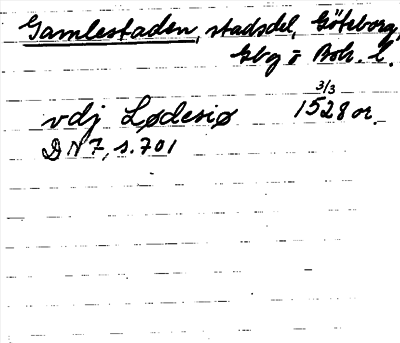 Gamlestaden, stadsdel, Göteborg,
Gbg i Boh. l.
3/3
vdj Lødesiø 1528 or.
DN 7, s. 701